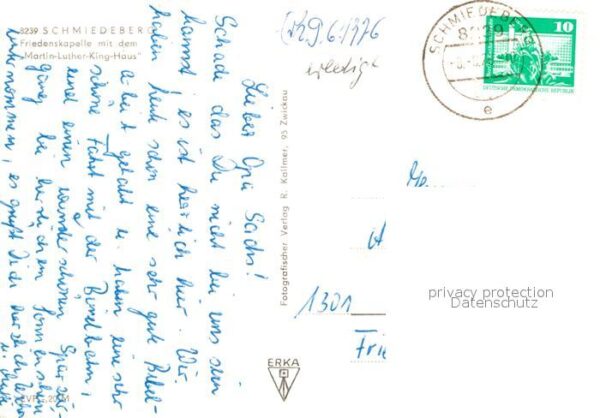 8239 SCHMIEDEBERG
Friedenskapelle mit dem
"Martin-Luther-King-Haus"
9.6.1976
erledigt
SCHMIEDEBERG
8239
e
10
DEUTSCHE DEMOKRATISCHE REPUBLIK
Lieber Opa Sachs!
Schade das Du nicht bei uns sein
kannst, es ist herrlich hier. Wir
haben heute schon eine sehr gute Bibel-
arbeit gehabt u. haben eine sehr
schöne Fahrt mit der Bimmelbahn,
und einen wunderschönen Spazier-
gang bei herrlichem Sonnenschein
unternommen, es grüßt Dich herzlich
Fotografischer Verlag R. Kallmer, 95 Zwickau
ERKA
1301
Frie
privacy protection
Datenschutz